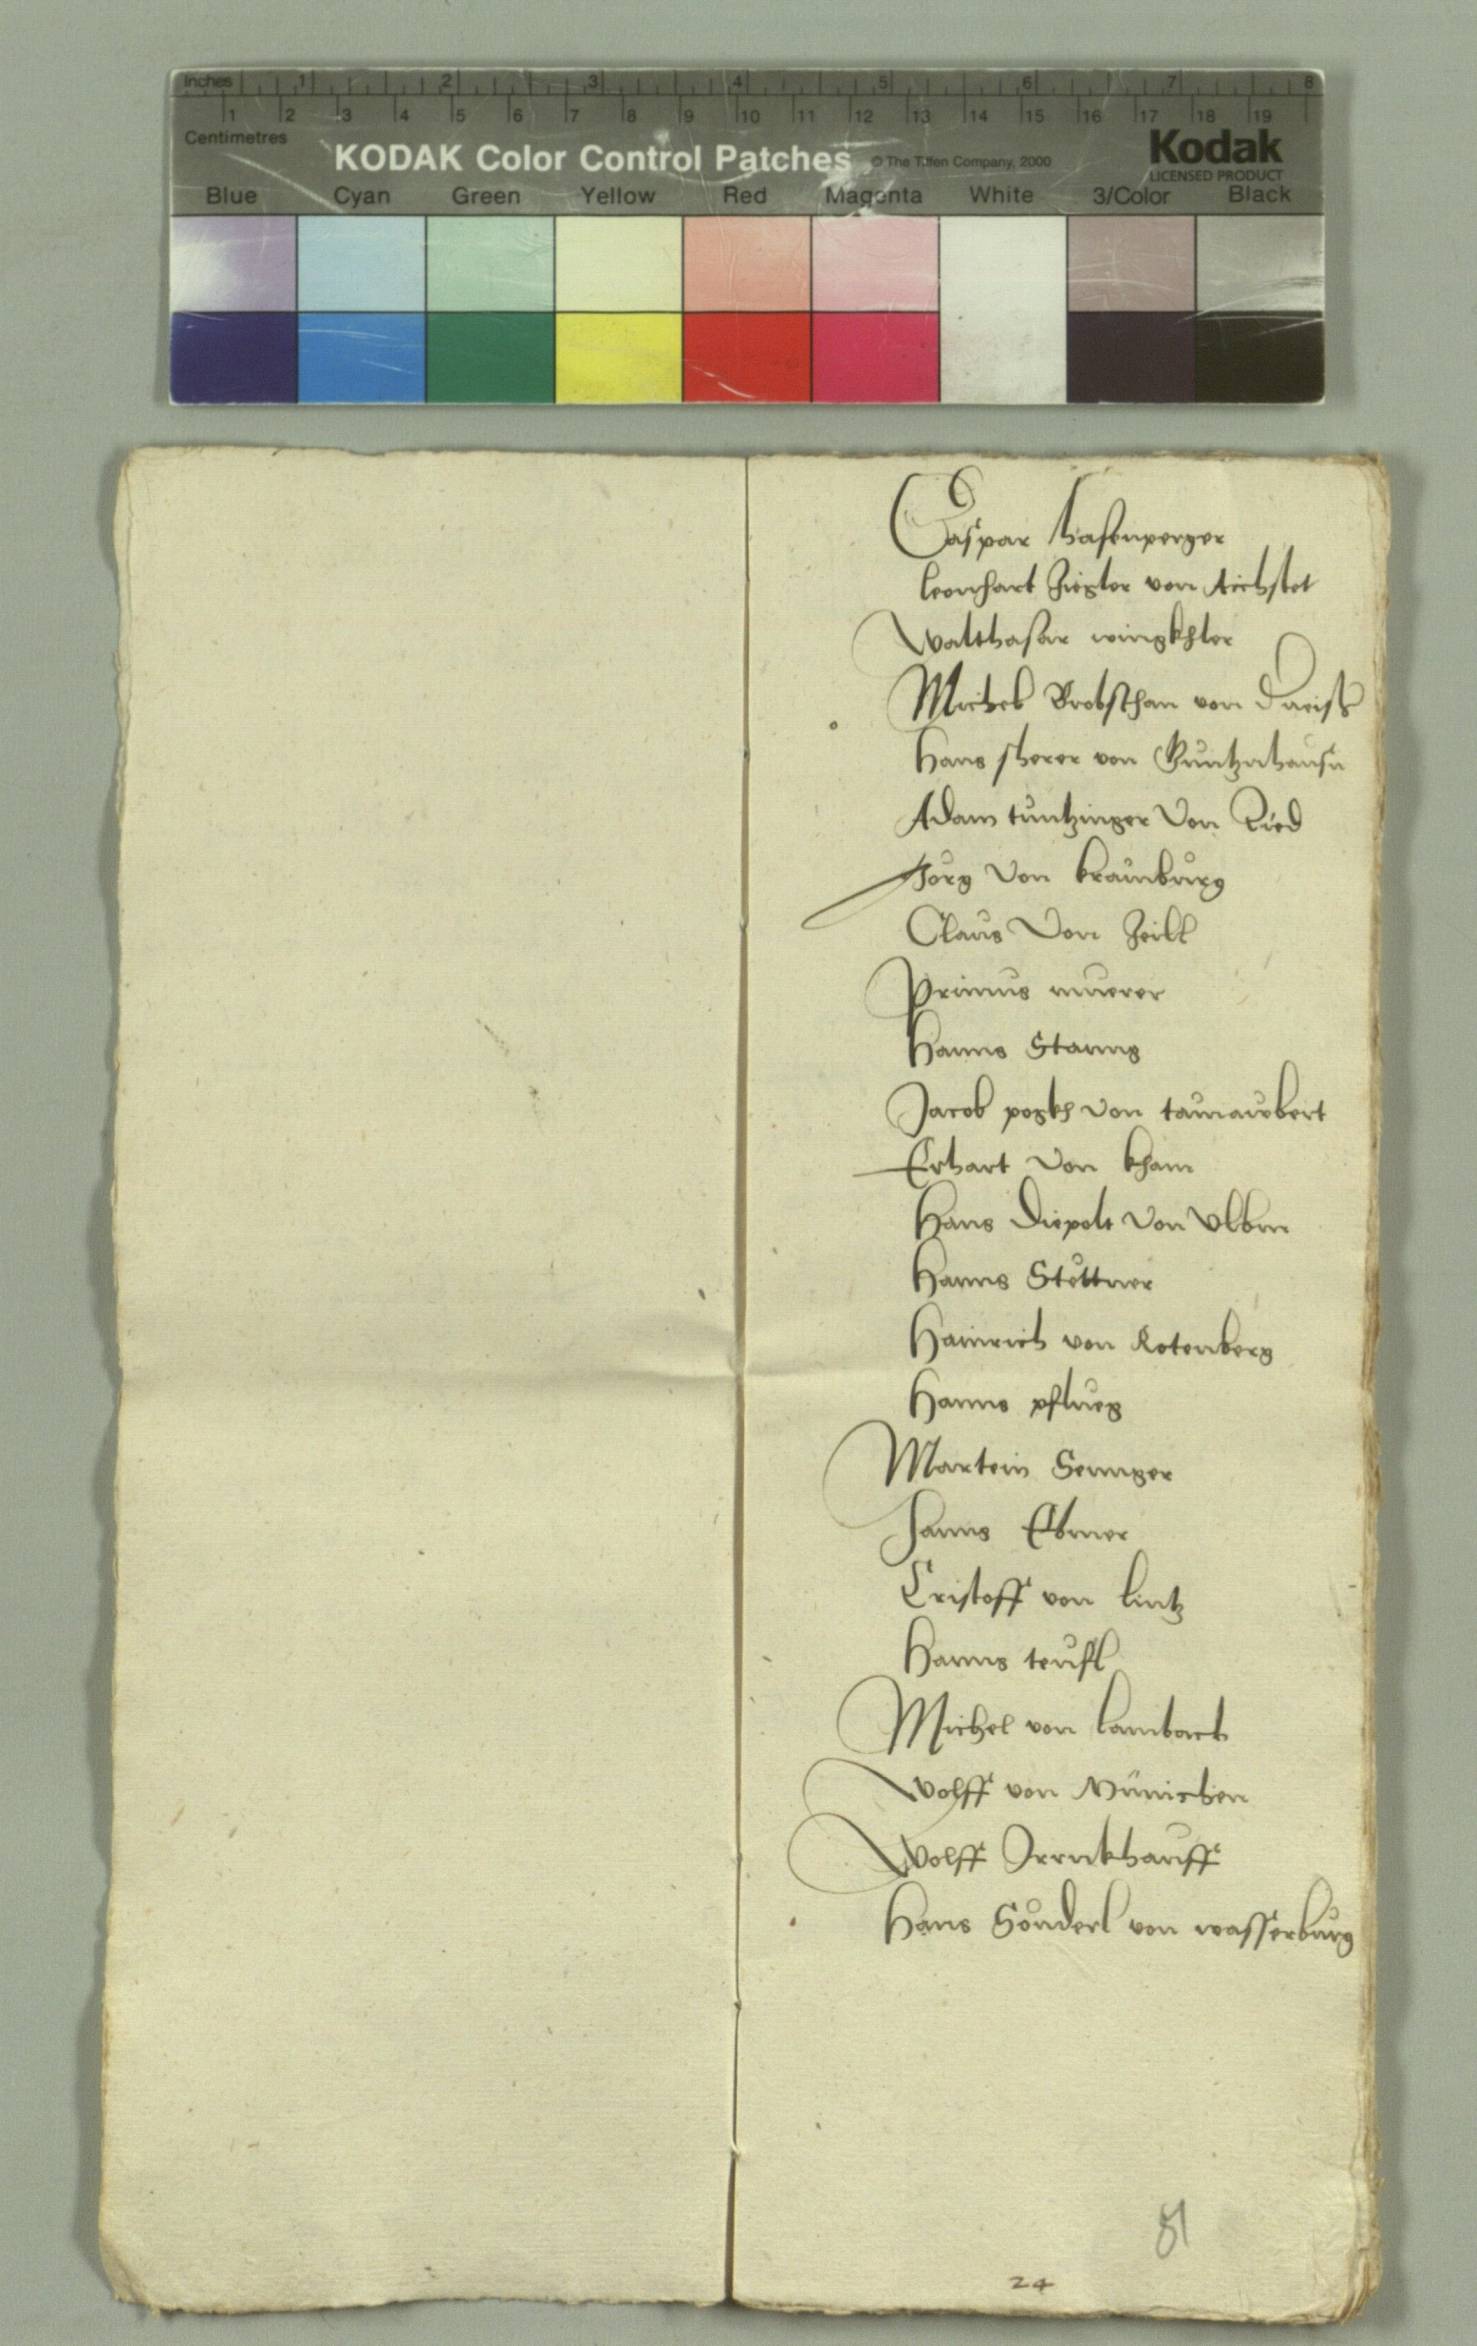 Inches 1 2 3 4 5 6 7 8
1 2 3 4 5 6 7 8 9 10 11 12 13 14 15 16 17 18 19
Centimetres
KODAK Color Control Patches © The Tiffen Company, 2000 Kodak
LICENSED PRODUCT
Blue Cyan Green Yellow Red Magenta White 3/Color Black
Caspar hasenperger
leonhart Ziegler von Aichstet
Walthasar wingkhler
Michel von
Hans sherer von Guntznhausn
Adam tuntzinger von Ried
Jörg von krainburg
Claus von Zeill
Primus murer
Hanns
Jacob pogkh von
Erhart von kham
Hans Diepolt von Ulbm
Hanns Stettner
Hainrich von Rotenberg
Hanns pflueg
Martein
Hanns Ebmer
Cristoff von lintz
Hanns teufl
Michel von lambach
Wolff von Münichen
Wolff
Hans Sünderl von wasserburg
81
24